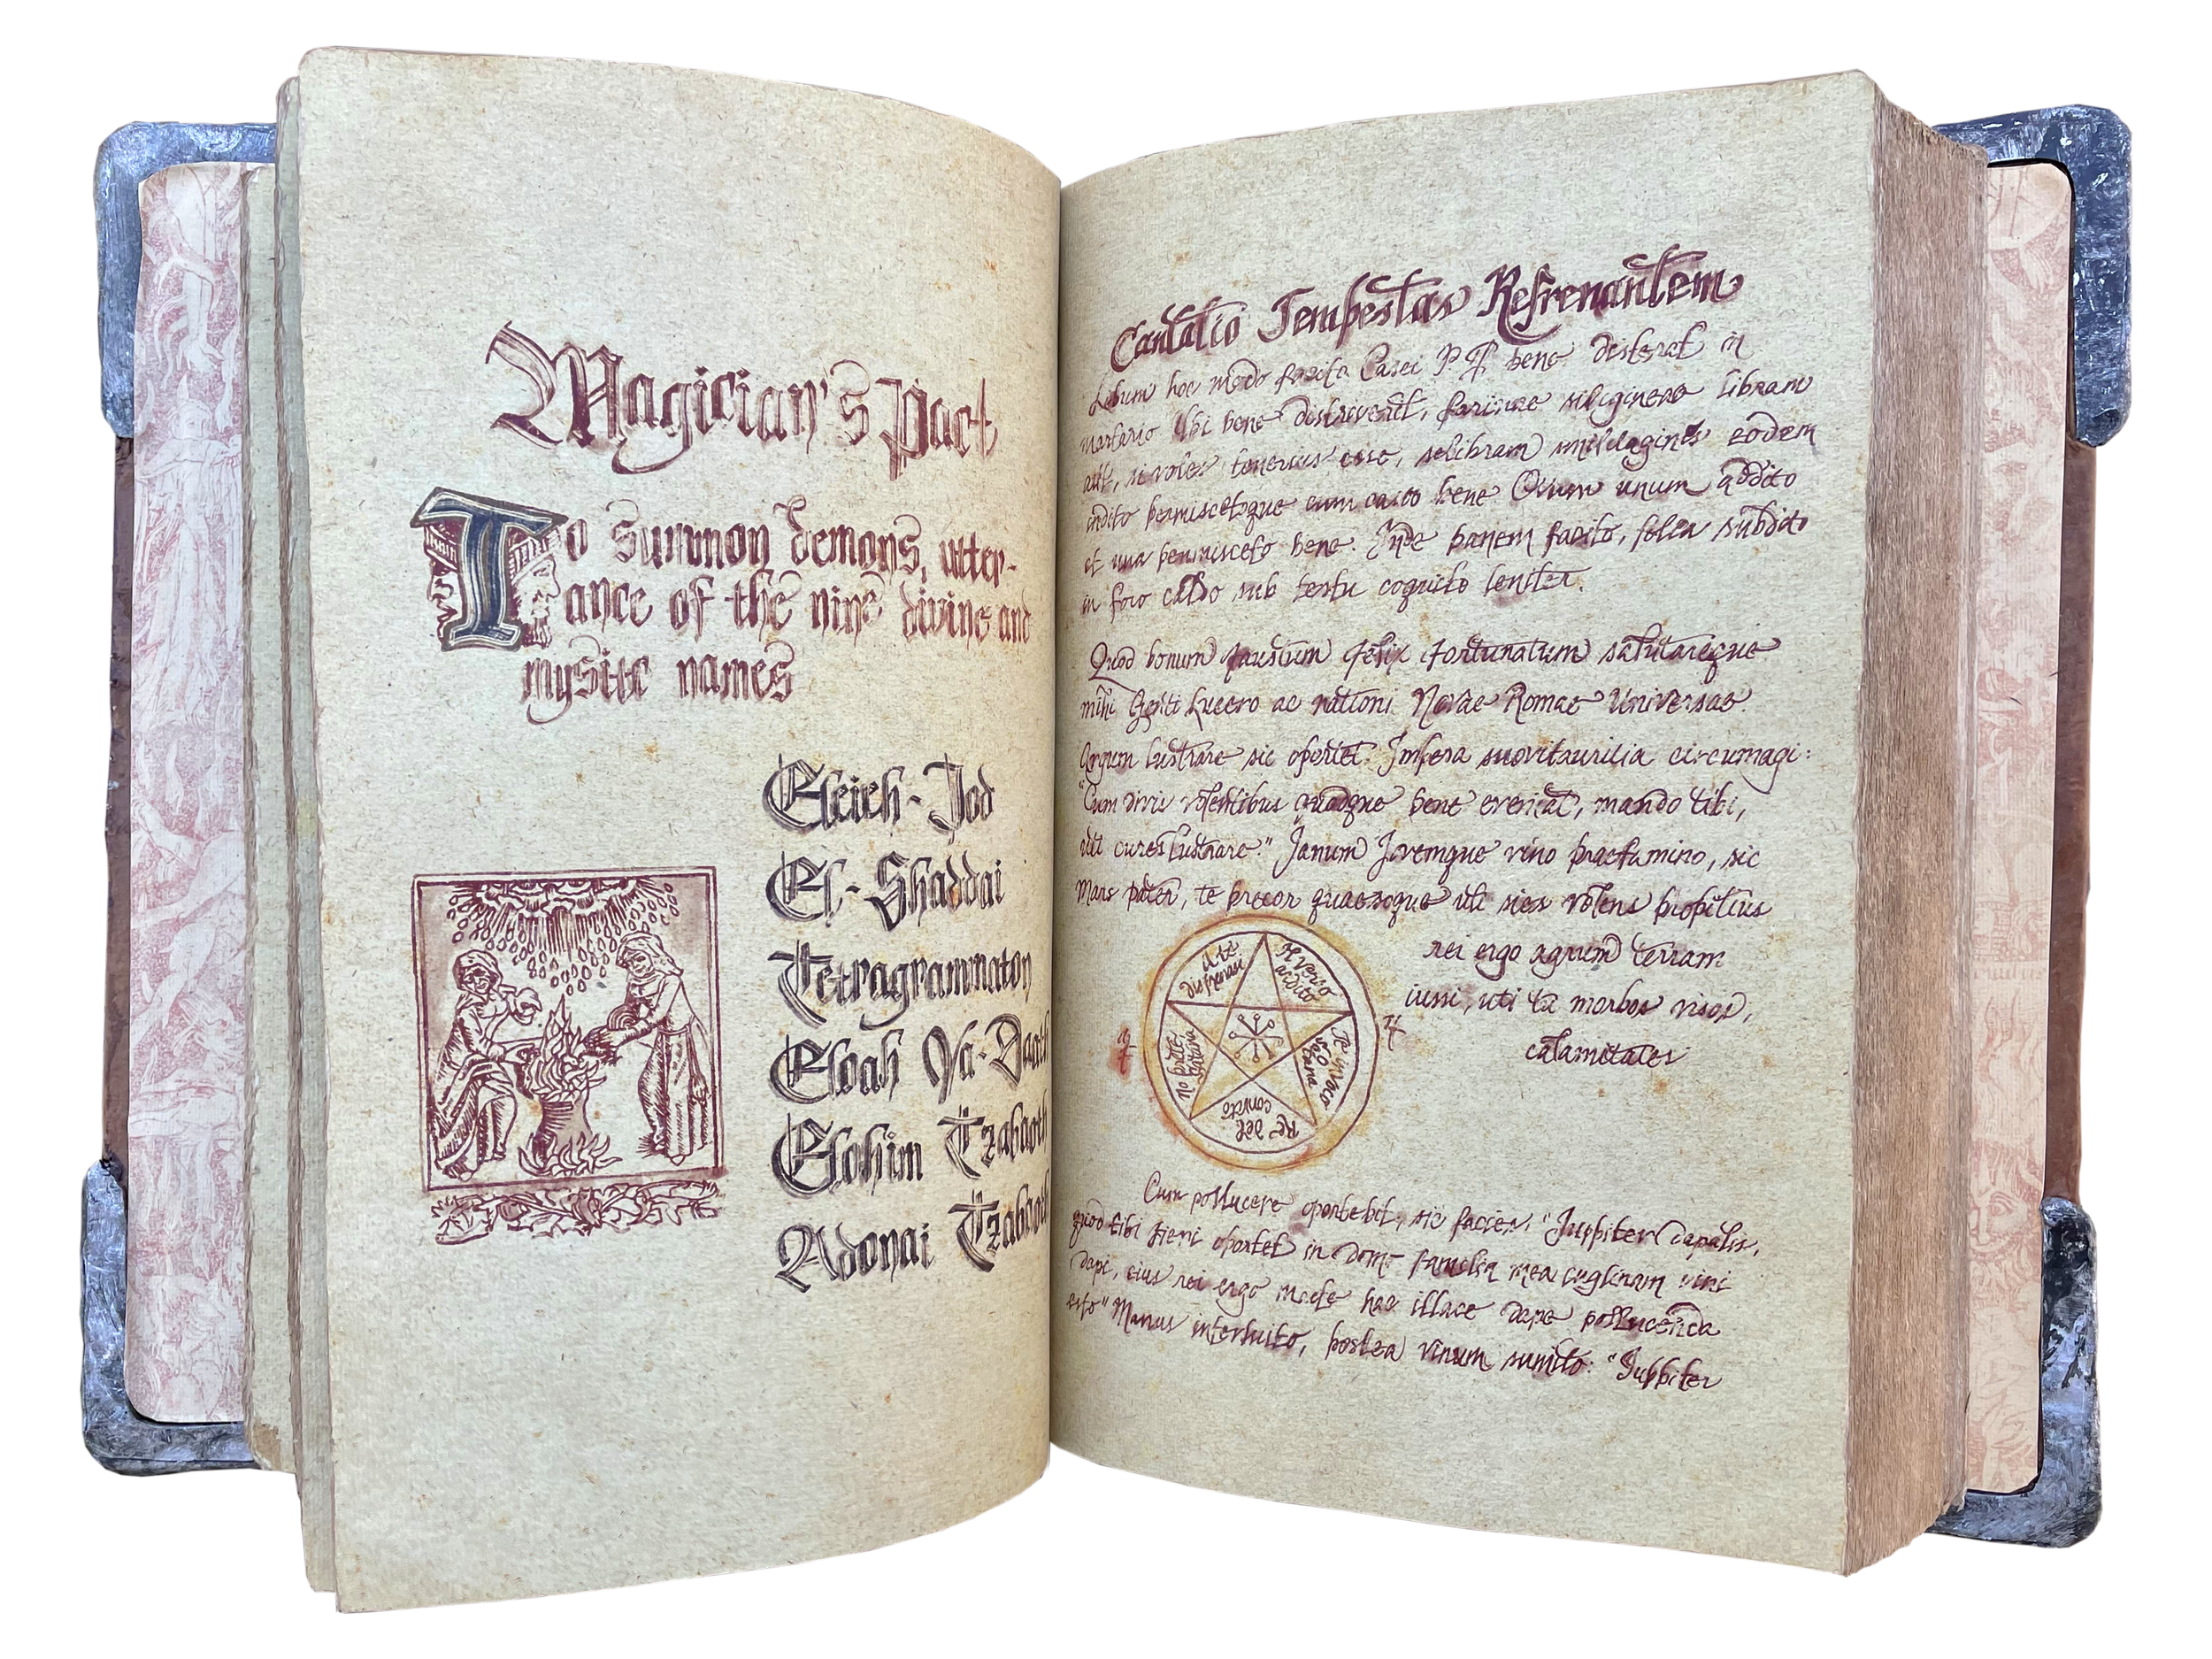 Magician's Pact
To summon demons, utter-
ance of the nine divine and
mystic names
Eheieh - Jod
El - Shaddai
Tetragrammaton
Eloah Va-Daath
Elohim Tzabaoth
Adonai Tzabaoth
Cantatio Tempestas Refrenantem
Libum hoc modo facito Casei P. bene disterat in
mortario Ubi bene distriverit, farinae siligineae libram
aut, si voles tenerius esse, selibram similaginis eodem
indito permiscetoque cum caseo bene Ovum unum addito
et una permisceto bene. Inde panem facito, folia subdito
in foco caldo sub testu coquito leniter.
Quod bonum faustum felix fortunatum salutareque
mihi Genti Lucero ac nationi Novae Romae Universae
Agrum lustrare sic oportet. Impera suovitaurilia circumagi:
"Cum divis volentibus quodque bene eveniat, mando tibi,
uti cures lustrare." Janum Jovemque vino praefamino, sic
Mars pater, te precor quaesoque uti sies volens propitius
rei ergo agrum terram
iussi, uti tu morbos visos,
calamitates
Cum pollucere oportebit, sic facies. "Juppiter dapalis,
quod tibi fieri oportet in domi familia mea culignam vini
dapi, eius rei ergo macte hac illace dape pollucenda
esto" Manus interluito, postea vinum sumito: "Juppiter